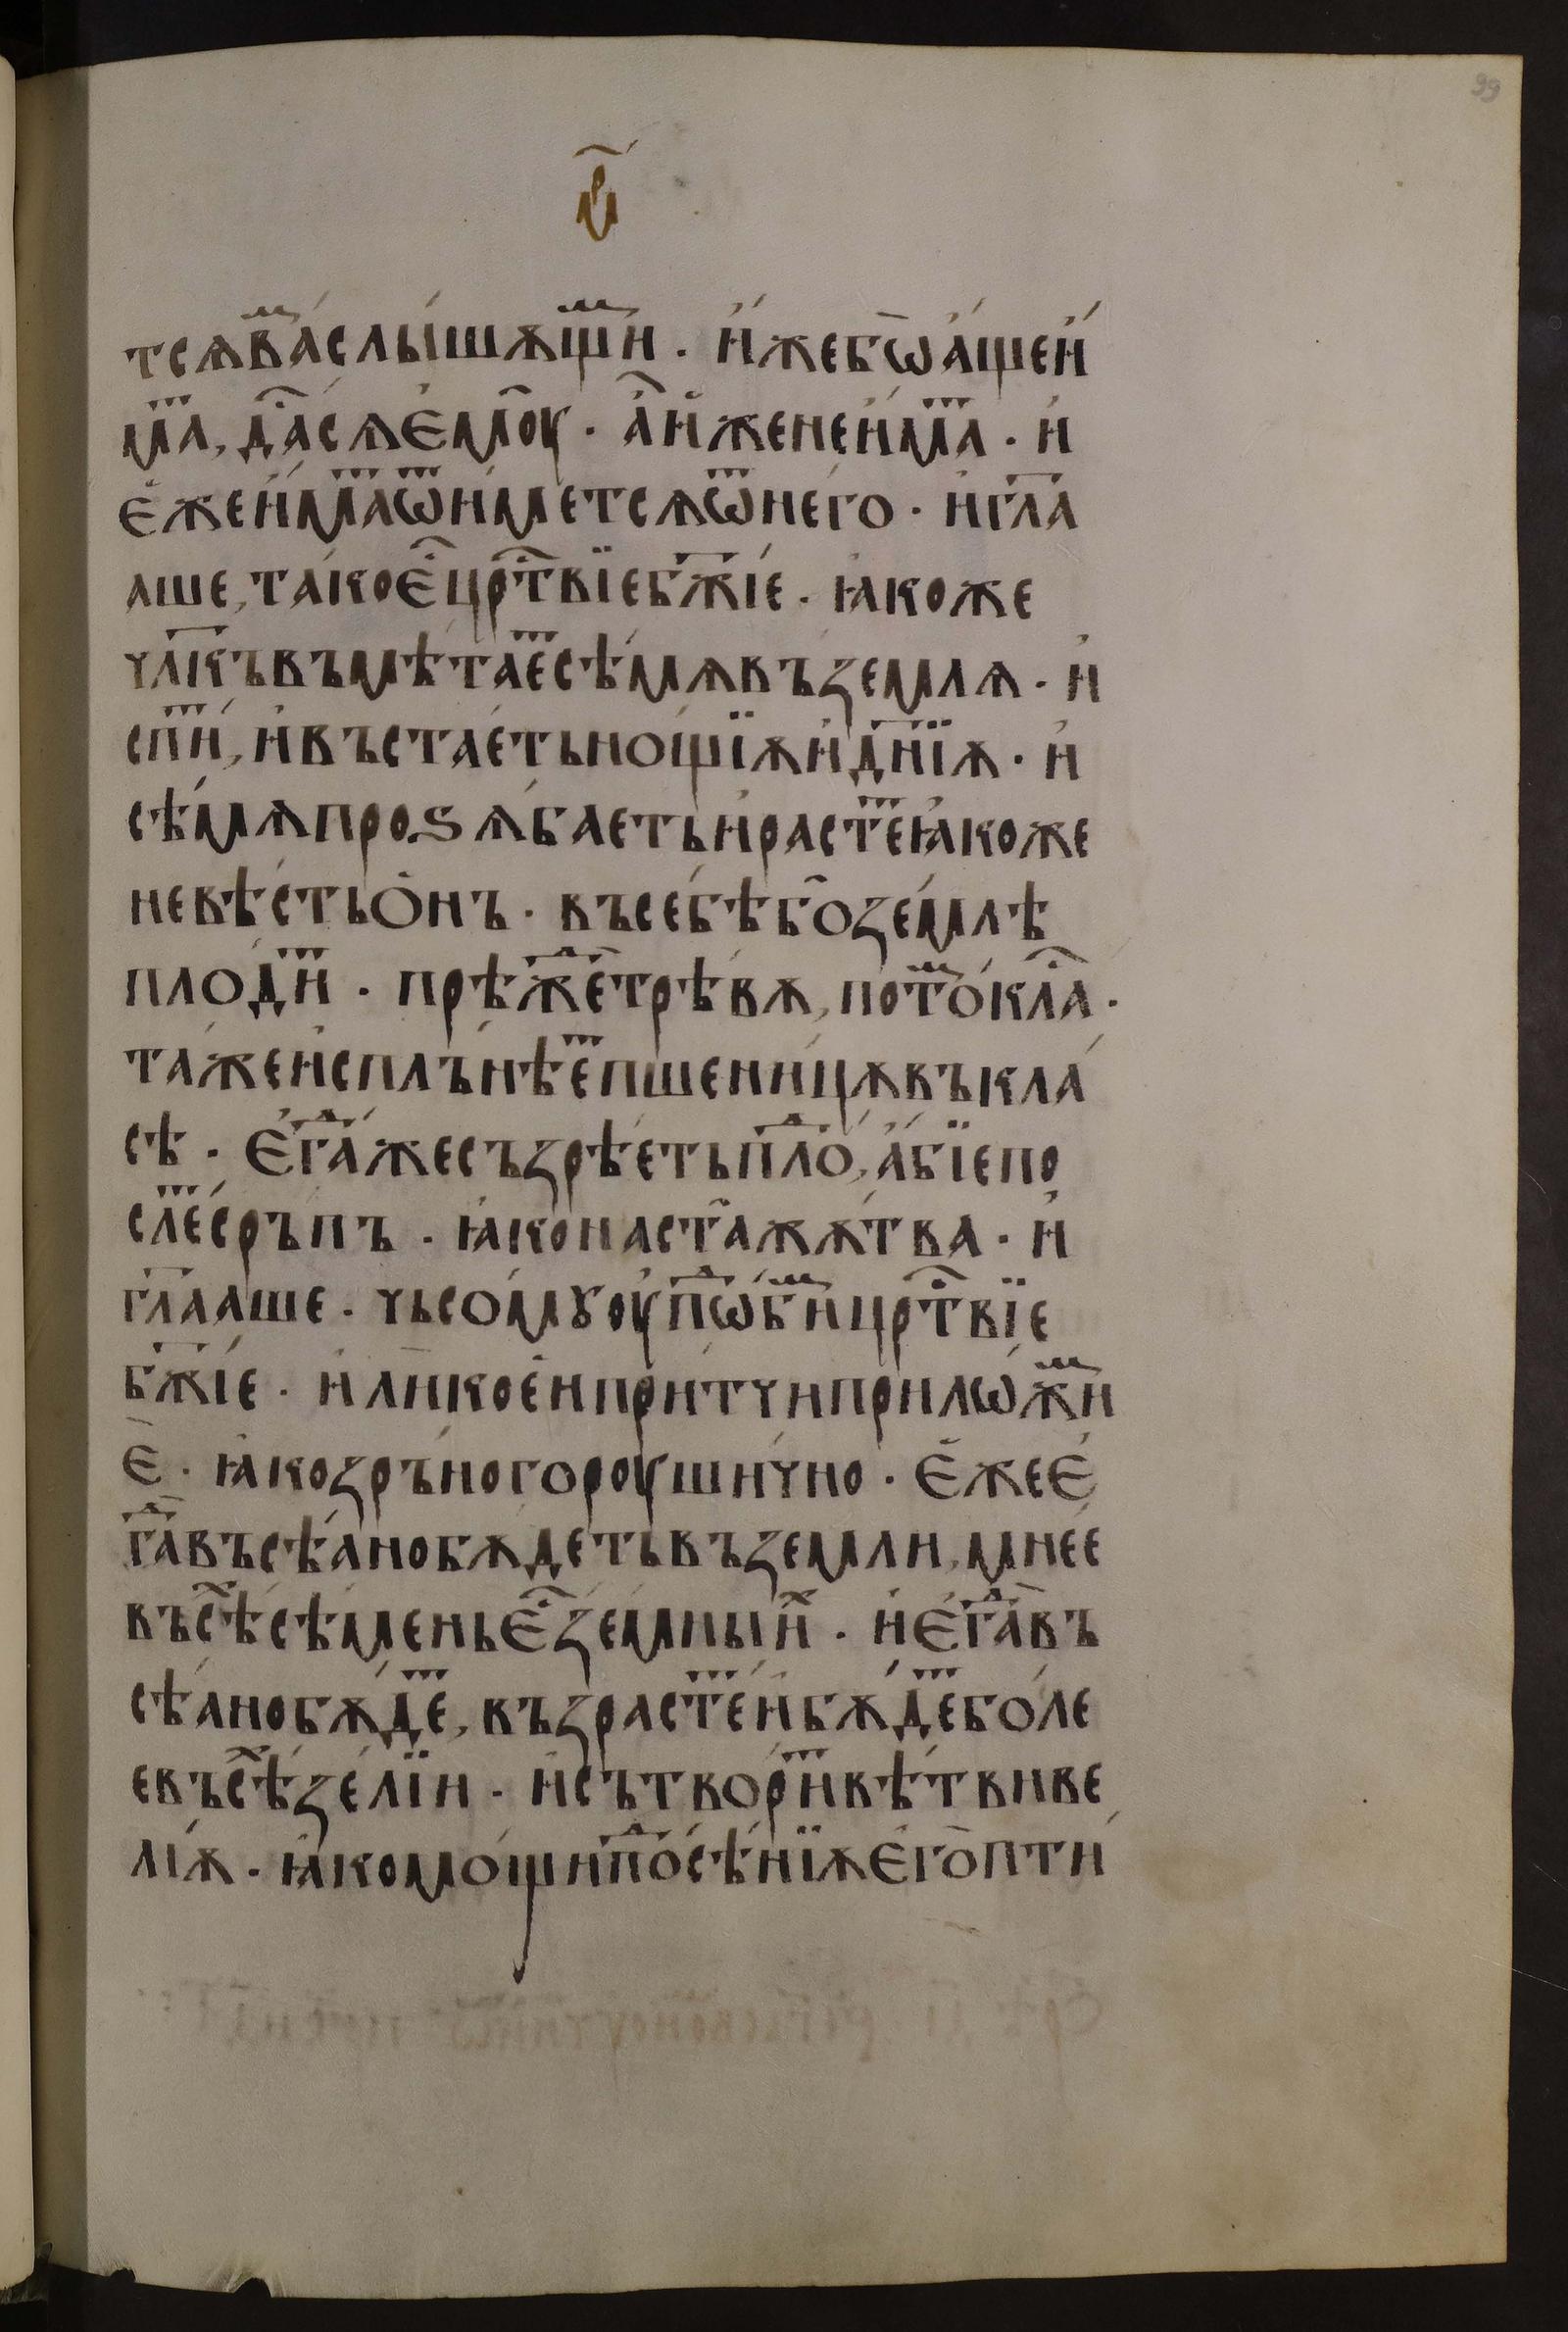 ч҃
тсѧ ва́ⷨ слы́шѧщїиⷨ · и́же бѡ̅ а́ще и́
маⷮ, да́стⷭ҇ѧ ємо̑у · а҆ и҆́же не и́маⷮ · и҆
є҆́же и́маⷮ ѿи́метсѧ ѿ него · и҆ гл҃а
аше, тако є҆́ⷭ црⷭ҇твїе бж҃і́е · ꙗ҆коже
чл҃къ въмѣтаеⷮ сѣ́мѧ въ ꙁемлѧ · и҆
спиⷮ, и҆ въстае́ть нощїѫ и҆ дн҃їѫ · и҆
сѣ́мѧ проѕѧ́баеть и҆ растеⷮ ꙗ҆коже
не вѣ́сть о҆́нъ · въ себѣ́ бо ꙁе́млѣ
плодиⷮ · прѣ́жеⷣ трѣ́вѫ, потоⷨ кла́ⷭ ·
таже и҆сплънѣ́еⷮ пшени́цѫ въ кла́
сѣ · є҆гаⷣ́же съꙁрѣ́еть плоⷣ, а҆́бїе по
слеⷮ сръпъ · ꙗ҆ко наста̑ жѫ́тва · и҆
гл҃ааше · чьсомꙋ оу҆поⷣбиⷨ црⷭ҇твїе
бж҃і́е · и҆ли́ кое́и при́тчи прилѡ́жиⷨ
є҆̀ · ꙗ҆ко ꙁръно гороушично · є҆́же є҆
гаⷣ въсѣ́ано бѫ́деть въ ꙁемли, мнее
въсѣⷯ сѣ́мень є҆ⷭ ꙁе́мныиⷯ · и҆ є҆гаⷣ въ
сѣ́ано бѫ́деⷮ, въꙁрастеⷮ и҆ бѫ́деⷮ бо́ле
е въсѣⷯ ꙁе́лїи · и҆ сътвориⷮ вѣ́тви ве
лі́ѫ · ꙗ҆ко мо́щи поⷣ сѣ́нїѫ є҆го̀ пти́
99